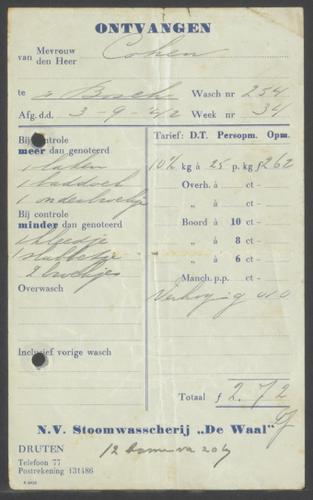 ONTVANGEN
van Mevrouw den Heer Cohen
te s Bosch Wasch nr 254
Afg. d.d. 3-9-42 Week nr 34
Bij controle
meer dan genoteerd
1 laken
1 baddoek
1 onderbroekje
Bij controle
minder dan genoteerd
1 kleedje
1 slabbetje
2 broekjes
Overwasch
Inclusief vorige wasch
Tarief: D.T. Persopm. Opm.
10½ kg à 25 p. kg f 2 62
Overh. à ct -
„ à ct -
Boord à 10 ct -
„ à 8 ct -
„ à 6 ct -
Manch. p.p. ct -
Verhoging 0 10
Totaal f 2.72
N.V. Stoomwasscherij „De Waal"
DRUTEN
Telefoon 77
Postrekening 131486
12